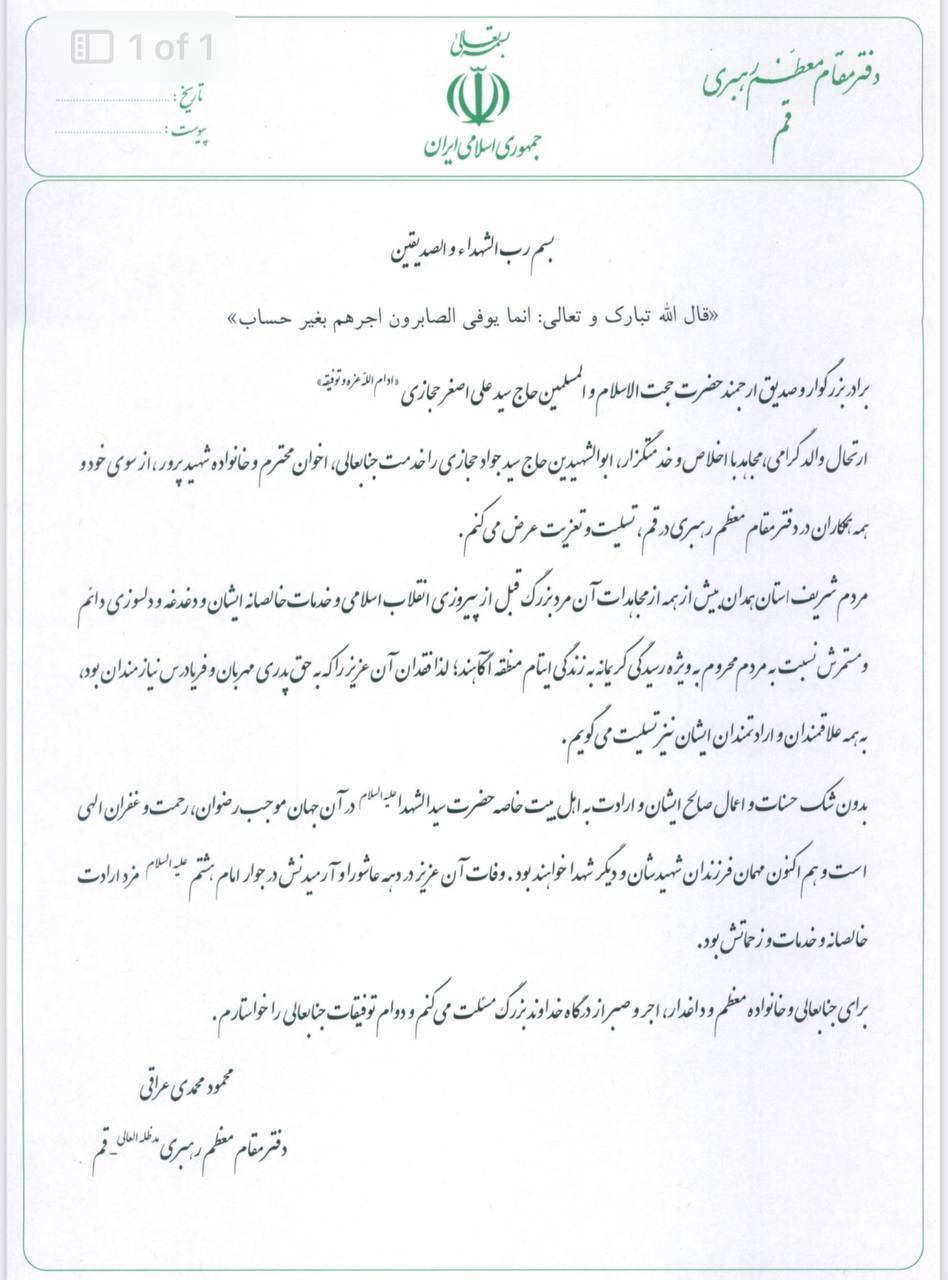 1 of 1
بسمه تعالی
دفتر مقام معظم رهبری
قم
جمهوری اسلامی ایران
تاریخ:
پیوست:
بسم رب الشهداء و الصدیقین
«قال الله تبارک و تعالی: انما یوفی الصابرون اجرهم بغیر حساب»
برادر بزرگوار و صدیق ارجمند حضرت حجت الاسلام و المسلمین حاج سید علی اصغر حجازی «ادام الله عزه و توفیقه»
ارتحال والد گرامی، مجاهد با اخلاص و خدمتگزار، ابوالشهیدین حاج سید جواد حجازی را خدمت جنابعالی، اخوان محترم و خانواده شهید پرور، از سوی خود و
همه همکاران در دفتر مقام معظم رهبری در قم، تسلیت و تعزیت عرض می کنم.
مردم شریف استان همدان بیش از همه از مجاهدات آن مرد بزرگ قبل از پیروزی انقلاب اسلامی و خدمات خالصانه ایشان و دغدغه و دلسوزی دائم
و مستمرش نسبت به مردم محروم به ویژه رسیدگی کریمانه به زندگی ایتام منطقه آگاهند؛ لذا فقدان آن عزیز را که به حق پدری مهربان و فریادرس نیازمندان بود،
به همه علاقمندان و ارادتمندان ایشان نیز تسلیت می گویم.
بدون شک حسنات و اعمال صالح ایشان و ارادت به اهل بیت خاصه حضرت سید الشهدا علیه السلام در آن جهان موجب رضوان، رحمت و غفران الهی
است و هم اکنون مهمان فرزندان شهیدشان و دیگر شهدا خواهند بود. وفات آن عزیز در دهه عاشورا و آرمیدنش در جوار امام هشتم علیه السلام مزد ارادت
خالصانه و خدمات و زحماتش بود.
برای جنابعالی و خانواده معظم و داغدار، اجر و صبر از درگاه خداوند بزرگ مسئلت می کنم و دوام توفیقات جنابعالی را خواستارم.
محمود محمدی عراقی
دفتر مقام معظم رهبری مدظله العالی - قم